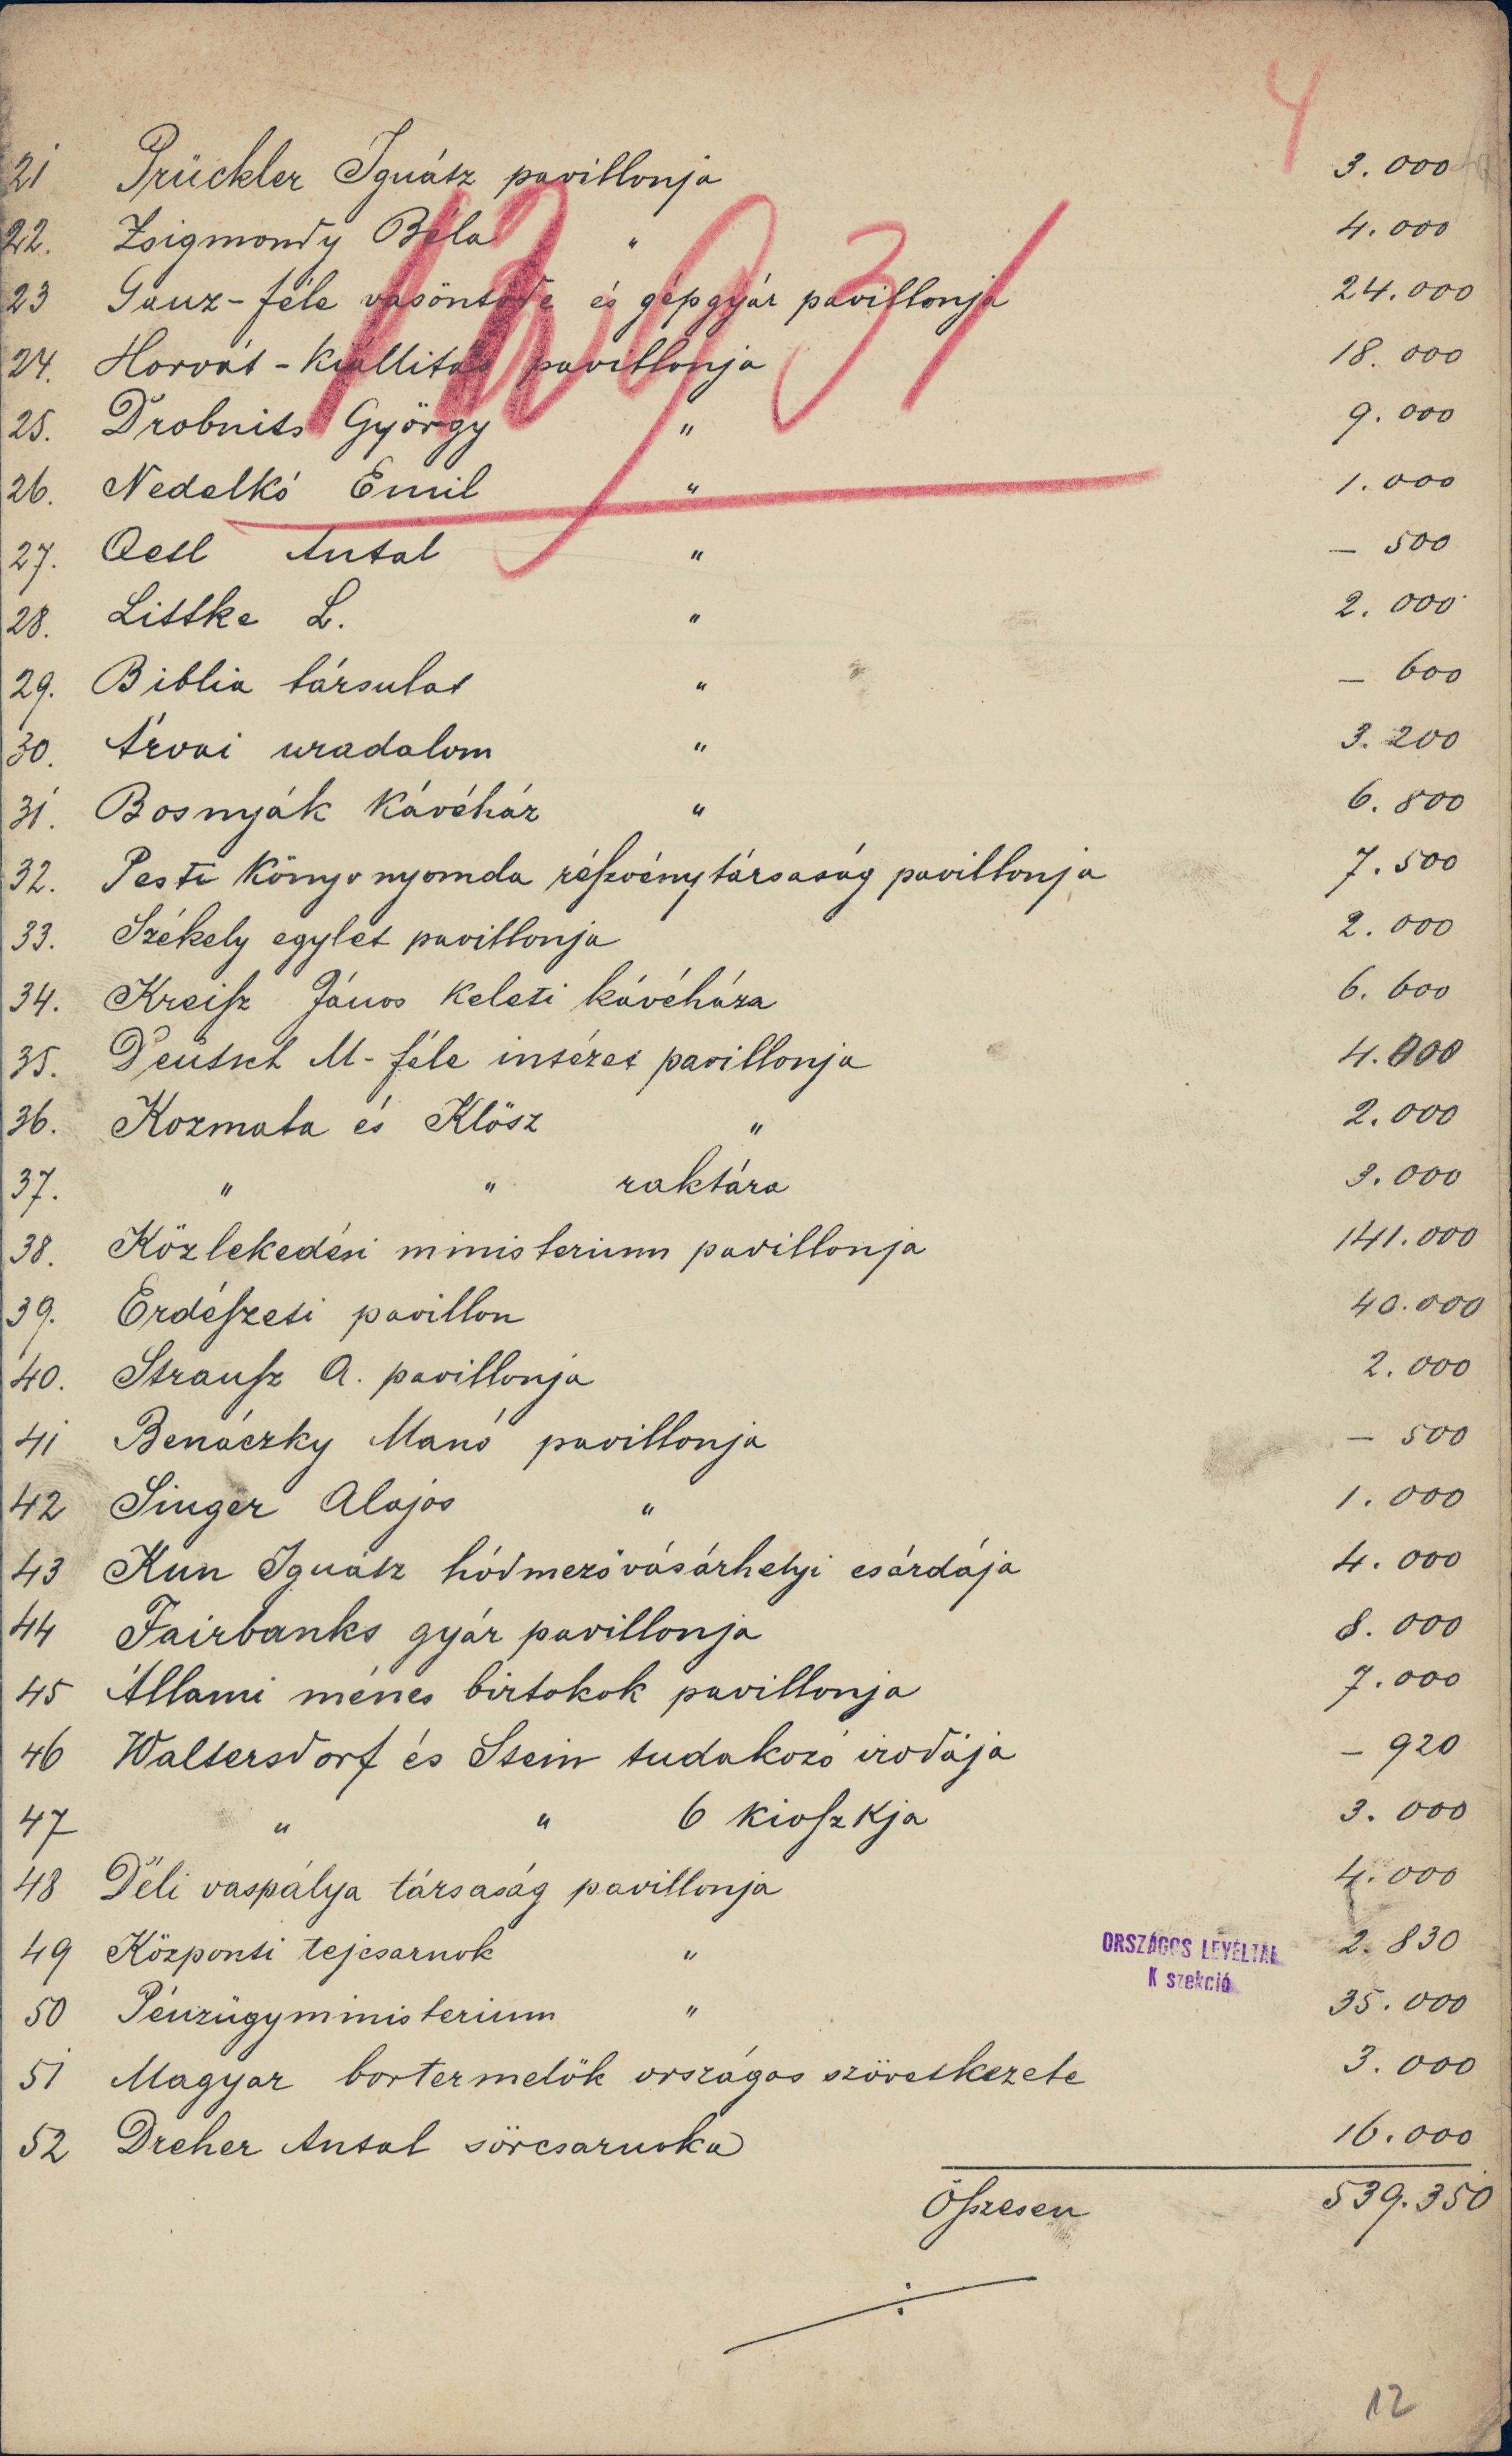 4
21 Prückler Ignátz pavillonja 3.000
22. Zsigmondy Béla " 4.000
23 Ganz-féle vasöntöde és gépgyár pavillonja 24.000
24. Horvát-kiállitás pavillonja 18.000
25. Drobnits György " 9.000
26. Nedelkó Emil " 1.000
27. Oetl Antal " – 500
28. Littke L. " 2.000
29. Biblia társulat " – 600
30. Árvai uradalom " 3.200
31. Bosnyák Kávéház " 6.800
32. Pesti Könyvnyomda réſzvénytársaság pavillonja 7.500
33. Székely egylet pavillonja 2.000
34. Kreiſz János Keleti kávéháza 6.600
35. Deutsch M-féle intézet pavillonja 4.000
36. Kozmata és Klösz " 2.000
37. " " raktára 3.000
38. Közlekedési ministerium pavillonja 141.000
39. Erdéſzeti pavillon 40.000
40. Strauſz A. pavillonja 2.000
41 Benáczky Manó pavillonja – 500
42 Singer Alajos " 1.000
43 Kun Ignátz hódmezővásárhelyi csárdája 4.000
44 Fairbanks gyár pavillonja 8.000
45 Állami ménes birtokok pavillonja 7.000
46 Waltersdorf és Stein tudakozó irodája – 920
47 " " 6 kioſzkja 3.000
48 Déli vaspálya társaság pavillonja 4.000
49 Központi tejcsarnok " 2.830
ORSZÁGOS LEVÉLTÁR
K szekció
50 Pénzügyministerium " 35.000
51 Magyar bortermelők országos szövetkezete 3.000
52 Dreher Antal sörcsarnoka 16.000
Öſszesen 539.350
12